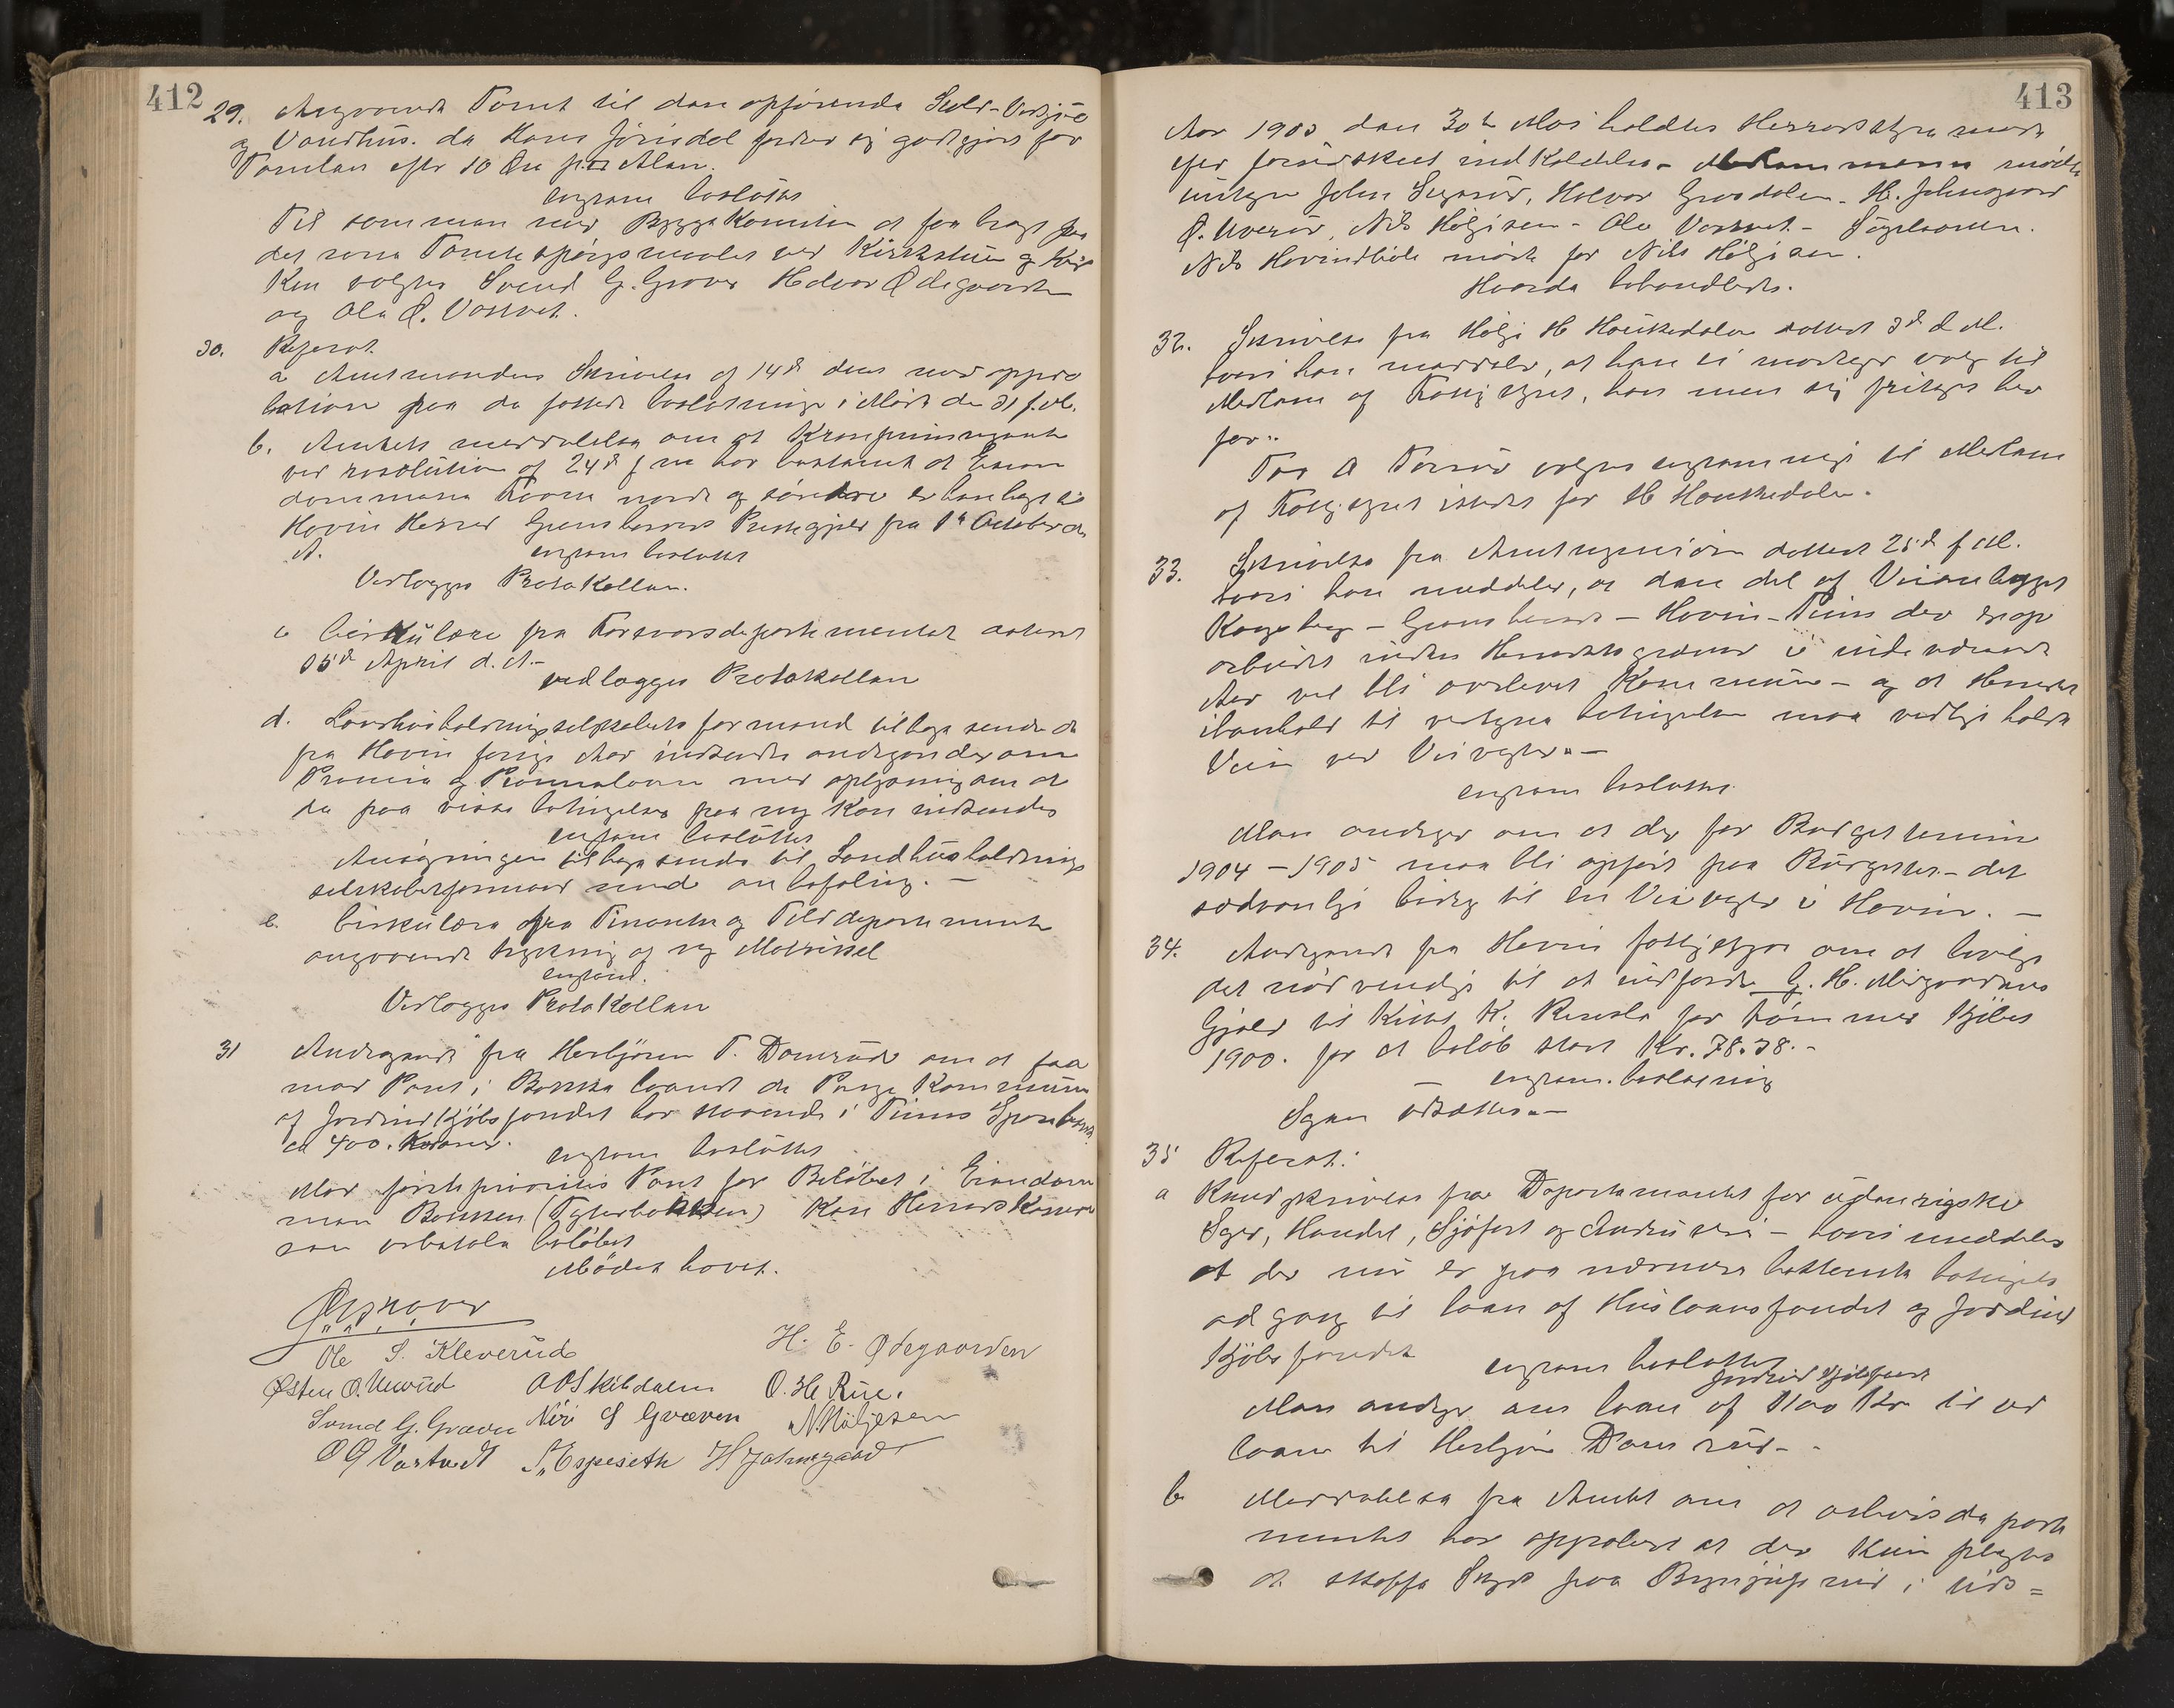 412
29. Angaaende Tomt til den opførende Stald-Vedskjul
og Vandhus. da Hans Jørisdal fordrer sig godtgjort for
Tomten efter 10 Øre pr. □ Alen.
enstem besluttes
Til sammen med Byggekomiten at faa bragt paa
det rene Tomtespørgsmaalet ved Kirkestuen og Kir
ken valgtes Svend G. Græver Halvor Ødegaarden
og Ole O. Vastvet.
30. Referat
a Amtmandens Skrivelse af 14de dens med appro
bation paa de fattede beslutninger i Møde den 31 f.M.
b. Amtets meddelelse om at Kronprinsregenten
ved resolution af 24de f m har bestemt at Eien
dommene Traaen nordre og søndre er henlagt til
Hovin Herred Gransherreds Prestegjeld fra 1ste October d.
A. enstem besluttet
Vedlægges Protokollen.
c Cirkulære fra Forsvarsdepartementet dateret
15de April d. A.-
vedlægges Protokollen
d. Landhusholdningsselskabets formand tilbagesender de
fra Hovin forrige Aar indsendte andragender om
Præmie med oplysning om at
de paa visse betingelser paa ny kan indsendes
enstem besluttes
Ansøgningen tilbagesendes til Landhusholdnings
selskabets formand med anbefaling. —
e. Cirkulære fra Finants og Tolddepartementet
angaaende trykning af ny Matrikkel
enstem.
Vedlægges Protokollen
31 Andragende fra Herbjørn T. Domrud om at faa
mod Pant i Bakken laant de Penge Kommunen
af Jordindkjøbsfondet har staaende i Tinns Sparebank
ca 400. Kroner. enstem besluttes
Mod første prioritets Pant for Beløbet i Eiendom
men Bakken (Tyterbakken) kan Herredskasse
ren udbetale beløbet
Mødet hævet.
Ole S. Kleverud H. E. Ødegaarden
Østen O. Uverud O O Skibdalen O. H. Rue.
Svend G. Græver Niri S Græven N. Høljesen
O O Vastvedt S. Espeseth H Jahnsgaard
413
Aar 1903 den 30te Mai holdtes Herredsstyremøde
efter forudskeet indkaldelse - Medlemmerne mødte
undtagen John Segerud, Halvor Grosdalen. H. Jahnsgaard
O. Uverud, Nils Høljesen - Ole Vastvet - Sigelsaaen.
Nils Hovindlid møder for Nils Høljesen.
Hvorda behandledes.
32. Skrivelse fra Høljе H Haukedalen dateret 3de d M.
hvori han meddeler, at han ei modtager valg til
Medlem af Fattigstyret, han mener sig fritaget her
for.
Tor A Torrud valgtes enstemmigt til Medlem
af Fattigstyret istedet for H Haukedalen.
33. Skrivelse fra Amtsingeniøren dateret 25de f M.
hvori han meddeler, at den del af Veianlægget
Kongsberg - Gransherred - Hovin - Tinn der er op
arbeidet inden Herredets grænser i indeværende
Aar vil bli overleveret Kommunen - og at Herredet
i henhold til vedtagne betingelser maa vedligeholde
Veien ved Veivogter. —
enstem besluttes
Man andrager om at der for Budgetterminen
1904 — 1905 maa bli opført paa Budgettet - det
sædvanlige bidrag til en Veivogter i Hovin. —
34. Andragende fra Hovin fattigstyre om at bevilge
det nødvendige til at indfordre G. H. Midgaardens
Gjæld til Kittil K. Reisla for tømmer kjøbet
1900. for et beløb stort Kr. 78.38.-
— enstem. beslutning
Sagen udsættes. —
35 Referat:
a Rundskrivelse fra Departementet for udenrigske
Sager, Handel, Sjøfart og Industri - hvori meddeles
at der nu er paa nærmere bestemte betingelser
adgang til laan af Huslaansfondet og Jordind
kjøbsfondet enstem besluttes
Jordindkjøbsfondet
Man andrager om laan af 1100 Kr til ud
laan til Herbjørn Domrud -
b Meddelelse fra Amtet om at arbeidsdeparte
mentet har approberet at der kun pligtes
at skaffe Skyds paa Bygdejuft ned i uds =